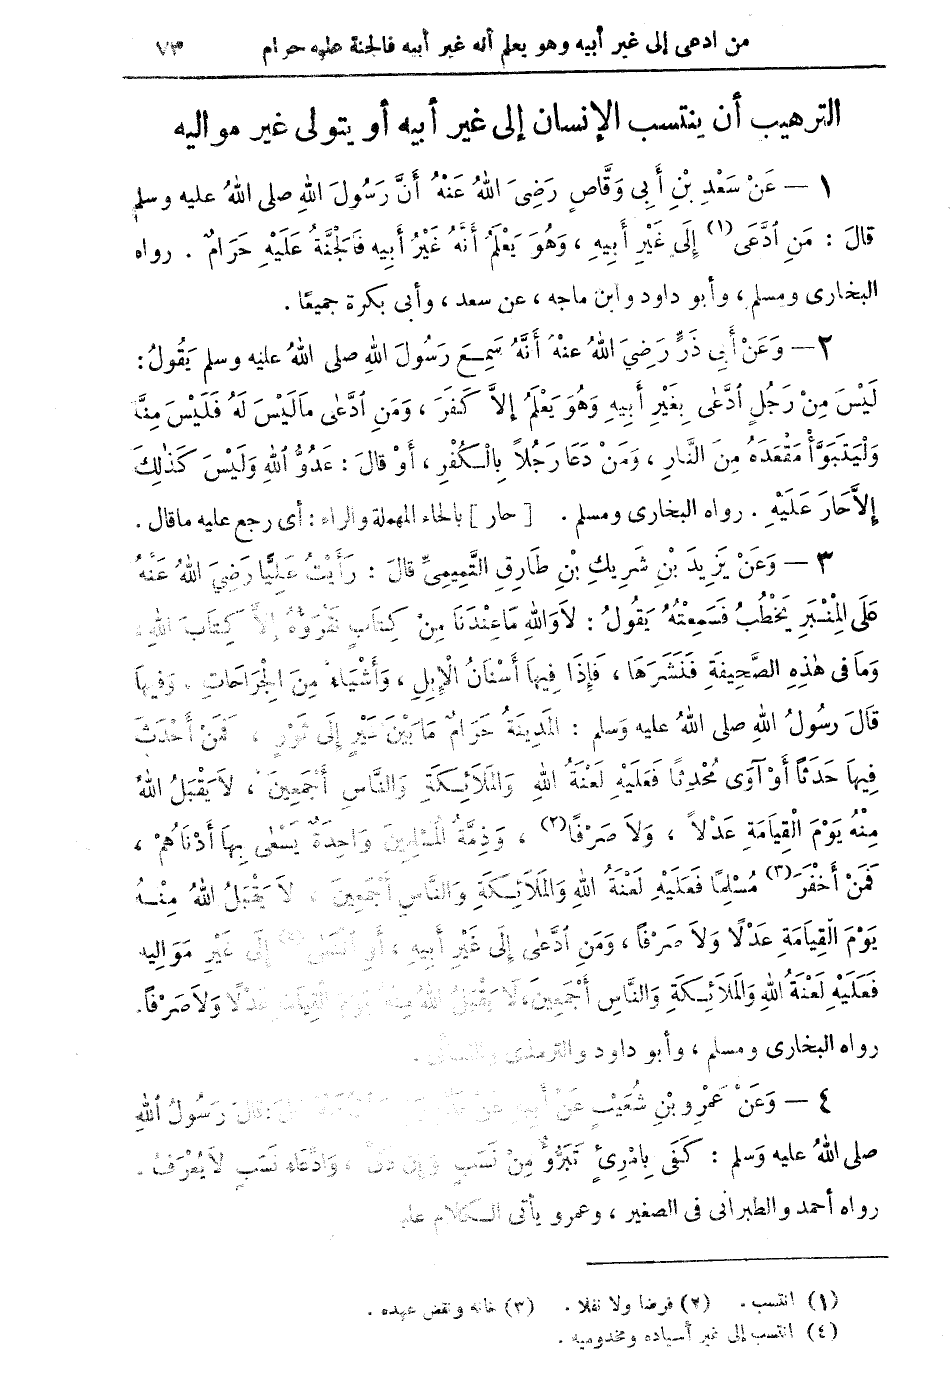 من ادعى إلى غير أبيه وهو يعلم أنه غير أبيه فالجنة عليه حرام ٧٣
الترهيب أن ينتسب الإنسان إلى غير أبيه أو يتولى غير مواليه
١ — عَنْ سَعْدِ بْنِ أَبِى وَقَّاصٍ رَضِىَ اللهُ عَنْهُ أَنَّ رَسُولَ اللهِ صلى اللهُ عليه وسلم
قالَ : مَنِ ٱدَّعَى(١) إِلَى غَيْرِ أَبِيهِ ، وَهُوَ يَعْلَمُ أَنَّهُ غَيْرُ أَبِيهِ فَالْجَنَّةُ عَلَيْهِ حَرَامٌ . رواه
البخارى ومسلم ، وأبو داود وابن ماجه ، عن سعد ، وأبى بكرة جميعًا .
٢ — وَعَنْ أَبِى ذَرٍّ رَضِيَ اللهُ عنْهُ أَنَّهُ سَمِعَ رَسُولَ اللهِ صلى اللهُ عليه وسلم يَقُولُ :
لَيْسَ مِنْ رَجُلٍ ٱدَّعَى بِغَيْرِ أَبِيهِ وَهُوَ يَعْلَمُ إِلاَّ كَفَرَ ، وَمَنِ ٱدَّعَى مَالَيْسَ لَهُ فَلَيْسَ مِنَّا
وَلْيَتَبَوَّأْ مَقْعَدَهُ مِنَ النَّارِ ، وَمَنْ دَعَا رَجُلاً بِالْكُفْرِ ، أَوْ قالَ : عَدُوُّ اللهِ وَلَيْسَ كَذٰلِكَ
إِلاَّ حَارَ عَلَيْهِ . رواه البخارى ومسلم . [ حار ] بالحاء المهملة والراء : أى رجع عليه ماقال .
٣ — وَعَنْ يَزِيدَ بْنِ شَرِيكِ بْنِ طَارِقٍ التَّمِيمِىِّ قالَ : رَأَيْتُ عَلِيًّا رَضِيَ اللهُ عَنْهُ
عَلَى الْمِنْبَرِ يَخْطُبُ فَسَمِعْتُهُ يَقُولُ : لاَ وَاللهِ مَاعِنْدَنَا مِنْ كِتَابٍ نَقْرَؤُهُ إِلاَّ كِتَابَ اللهِ ،
وَمَا فى هٰذِهِ الصَّحِيفَةِ فَنَشَرَهَا ، فَإِذَا فِيهَا أَسْنَانُ الْإِبِلِ ، وَأَشْيَاءُ مِنَ الْجِرَاحَاتِ . وَفِيهَا
قَالَ رسُولُ اللهِ صلى اللهُ عليه وَسلم : المَدِينَةُ حَرَامٌ مَابَيْنَ عَيْرٍ إِلَى ثَوْرٍ ، فَمَنْ أَحْدَثَ
فِيهَا حَدَثًا أَوْ آوَى مُحْدِثًا فَعَلَيْهِ لَعْنَةُ اللهِ وَالْمَلَائِكَةِ وَالنَّاسِ أَجْمَعِينَ ، لاَ يَقْبَلُ اللهُ
مِنْهُ يَوْمَ الْقِيَامَةِ عَدْلاً ، وَلاَ صَرْفًا(٢) ، وَذِمَّةُ الْمُسْلِمِينَ وَاحِدَةٌ يَسْعَى بِهَا أَدْنَاهُمْ ،
فَمَنْ أَخْفَرَ(٣) مُسْلِمًا فَعَلَيْهِ لَعْنَةُ اللهِ وَالْمَلَائِكَةِ وَالنَّاسِ أَجْمَعِينَ ، لاَ يَقْبَلُ اللهُ مِنْهُ
يَوْمَ الْقِيَامَةِ عَدْلًا وَلاَ صَرْفًا ، وَمَنِ ٱدَّعَى إِلَى غَيْرِ أَبِيهِ ، أَوِ انْتَمَى(٤) إِلَى غَيْرِ مَوَالِيهِ
فَعَلَيْهِ لَعْنَةُ اللهِ وَالْمَلَائِكَةِ وَالنَّاسِ أَجْمَعِينَ ، لَا يَقْبَلُ اللهُ مِنْهُ يَوْمَ الْقِيَامَةِ عَدْلًا وَلاَ صَرْفًا .
رواه البخارى ومسلم ، وأبو داود والترمذى والنسائى .
٤ — وَعَنْ عَمْرِو بْنِ شُعَيْبٍ عَنْ أَبِيهِ عَنْ جَدِّهِ قالَ : قالَ رَسُولُ اللهِ
صلى اللهُ عليه وَسلم : كَفَى بِامْرِئٍ تَبَرُّؤٌ مِنْ نَسَبٍ وَإِنْ دَقَّ ، وَادِّعَاءُ نَسَبٍ لاَ يُعْرَفُ .
رواه أحمد والطبرانى فى الصغير ، وعمرو يأتى الكلام عليه
(١) انتسب . (٢) فرضا ولا نفلا . (٣) خانه ونقض عهده .
(٤) انتسب إلى غير أسياده ومخدوميه .